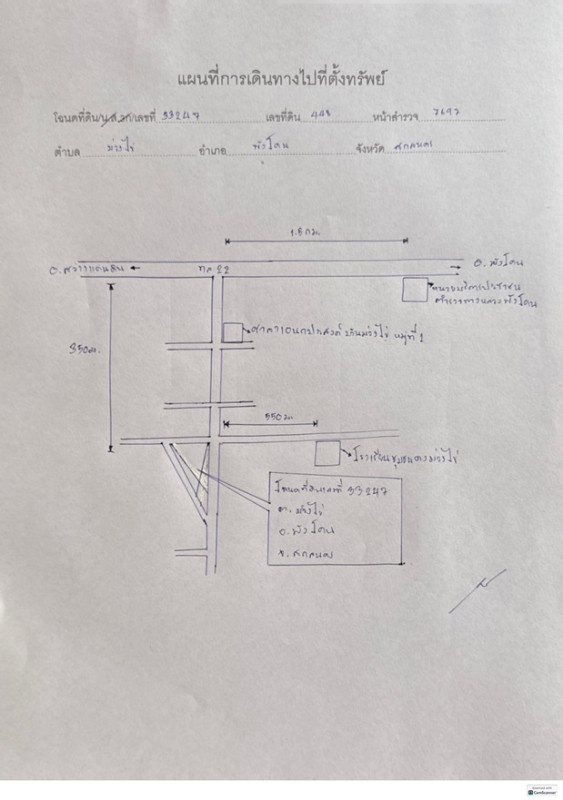 แผนที่การเดินทางไปที่ตั้งทรัพย์
โฉนดที่ดิน/น.ส.3ก/เลขที่ 33247 เลขที่ดิน 448 หน้าสำรวจ
ตำบล ม่วงไข่ อำเภอ พังโคน จังหวัด สกลนคร
1.5 กม.
อ.สว่างแดนดิน
ทล 22
อ. พังโคน
หน่วยบริการประชาชน
ตำรวจทางหลวงพังโคน
ศาลาเอนกประสงค์ บ้านม่วงไข่ หมู่ที่ 1
350 ม.
550 ม.
โรงเรียนชุมชนม่วงไข่
โฉนดที่ดินเลขที่ 33247
ต. ม่วงไข่
อ. พังโคน
จ. สกลนคร
CamScanner